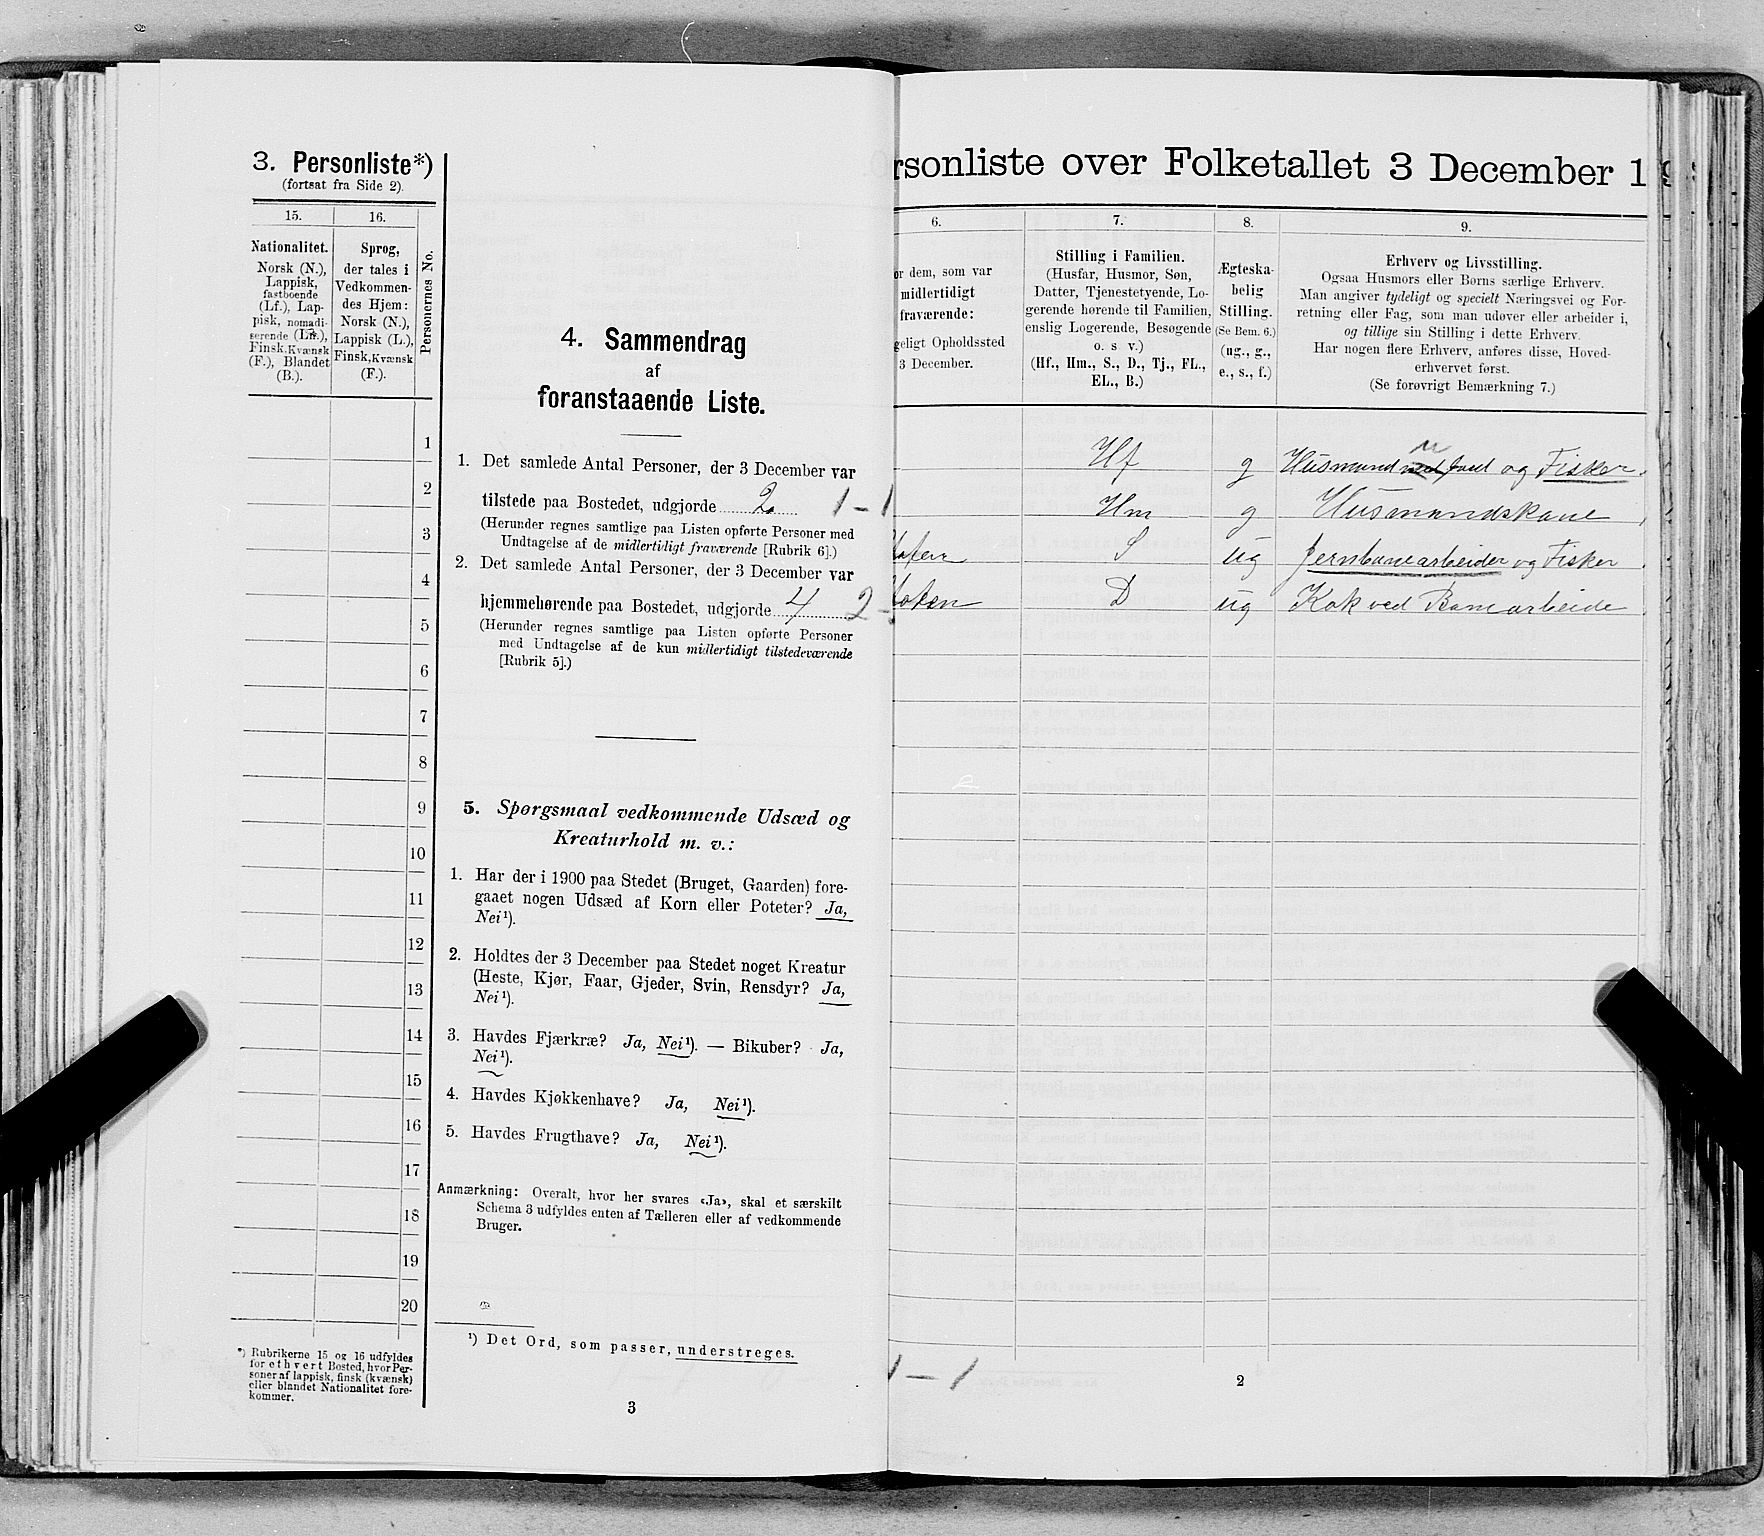 3. Personliste*)
(fortsat fra Side 2).
15.
16.
Personernes No.
Nationalitet.
Norsk (N.),
Lappisk,
fastboende
(Lf.), Lap-
pisk, nomadi-
serende (Ln.),
Finsk, Kvænsk
(F.), Blandet
(B.).
Sprog,
der tales i
Vedkommen-
des Hjem:
Norsk (N.),
Lappisk (L.),
Finsk, Kvænsk
(F.).
1
2
3
4
5
6
7
8
9
10
11
12
13
14
15
16
17
18
19
20
*) Rubrikerne 15 og 16 udfyldes
for ethvert Bosted, hvor Per-
soner af lappisk, finsk (kvænsk)
eller blandet Nationalitet fore-
kommer.
4. Sammendrag
af
foranstaaende Liste.
1. Det samlede Antal Personer, der 3 December var
tilstede paa Bostedet, udgjorde 2 1-1
(Herunder regnes samtlige paa Listen opførte Personer med
Undtagelse af de midlertidigt fraværende [Rubrik 6].)
2. Det samlede Antal Personer, der 3 December var
hjemmehørende paa Bostedet, udgjorde 4 2-
(Herunder regnes samtlige paa Listen opførte Personer
med Undtagelse af de kun midlertidigt tilstedeværende
[Rubrik 5].)
5. Spørgsmaal vedkommende Udsæd og
Kreaturhold m. v.:
1. Har der i 1900 paa Stedet (Bruget, Gaarden) fore-
gaaet nogen Udsæd af Korn eller Poteter? Ja,
Nei¹).
2. Holdtes der 3 December paa Stedet noget Kreatur
(Heste, Kjør, Faar, Gjeder, Svin, Rensdyr? Ja,
Nei¹).
3. Havdes Fjærkræ? Ja, Nei¹). — Bikuber? Ja,
Nei¹).
4. Havdes Kjøkkenhave? Ja, Nei¹).
5. Havdes Frugthave? Ja, Nei¹).
Anmærkning: Overalt, hvor her svares «Ja», skal et særskilt
Schema 3 udfyldes enten af Tælleren eller af vedkommende
Bruger.
¹) Det Ord, som passer, understreges.
3
rsonliste over Folketallet 3 December 19
6.
7.
8.
9.
or dem, som var
midlertidigt
fraværende:
geligt Opholdssted
3 December.
Stilling i Familien.
(Husfar, Husmor, Søn,
Datter, Tjenestetyende, Lo-
gerende hørende til Familien,
enslig Logerende, Besøgende
o. s v.)
(Hf., Hm., S., D., Tj., FL.,
EL., B.)
Ægteska-
belig
Stilling.
(Se Bem. 6.)
(ug., g.,
e., s., f.)
Erhverv og Livsstilling.
Ogsaa Husmors eller Børns særlige Erhverv.
Man angiver tydeligt og specielt Næringsvei og For-
retning eller Fag, som man udøver eller arbeider i,
og tillige sin Stilling i dette Erhverv.
Har nogen flere Erhverv, anføres disse, Hoved-
erhvervet først.
(Se forøvrigt Bemærkning 7.)
Hf g Husmand jord og Fisker
Hm g Husmandskone
S ug Jernbanearbeider og Fisker
D ug Kok ved Banearbeide
1-1
2